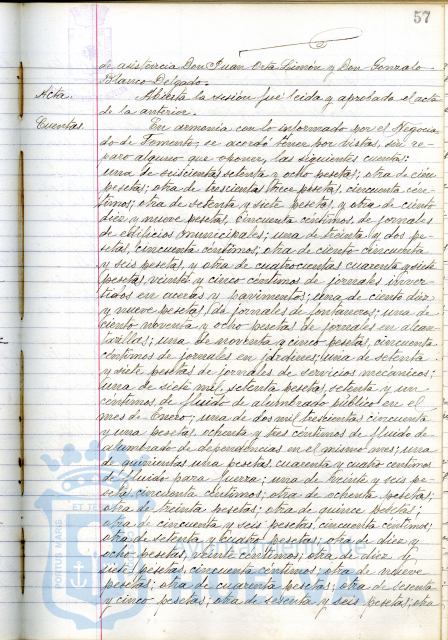 57
de asistencia Don Juan Orta Limón y Don Gonzalo
Blanco Delgado.
Acta. Abierta la sesión fué leida y aprobada el acta
de la anterior.
Cuentas. En armonia con lo informado por el Negocia
do de Fomento, se acordó tener por vistas, sin re-
paro alguno que oponer, las siguientes cuentas:
una de seiscientas setenta y ocho pesetas; otra de cien
pesetas; otra de trescientas trece pesetas, cincuenta cén-
timos; otra de setenta y siete pesetas, y otra de ciento
diez y nueve pesetas, cincuenta céntimos, de jornales
de edificios municipales; una de treinta y dos pe-
setas, cincuenta céntimos, otra de ciento cincuenta
y seis pesetas, y otra de cuatrocientas cuarenta y siete
pesetas, veinte y cinco céntimos de jornales inver-
tidos en y pavimentos; una de ciento diez
y nueve pesetas, de jornales de fontaneros; una de
ciento noventa y ocho pesetas de jornales en alcan-
tarillas; una de noventa y cinco pesetas, cincuenta
céntimos de jornales en jardines; una de setenta
y siete pesetas de jornales de servicios mecánicos;
una de siete mil, setenta pesetas, setenta y un
céntimos de fluido de alumbrado público en el
mes de Enero; una de dos mil trescientas cincuenta
y una pesetas, ochenta y tres céntimos de fluido de
alumbrado de dependencias en el mismo mes; una
de quinientas una pesetas, cuarenta y cuatro céntimos
de fluido para fuerza; una de treinta y seis pe-
setas, cincuenta céntimos; otra de ochenta pesetas;
otra de treinta pesetas; otra de quince pesetas;
otra de cincuenta y seis pesetas, cincuenta céntimos;
otra de setenta y cuatro pesetas; otra de diez y
ocho pesetas, veinte céntimos; otra de diez y
siete pesetas, cincuenta céntimos; otra de nueve
pesetas; otra de cuarenta pesetas; otra de sesenta
y cinco pesetas; otra de sesenta y seis pesetas; otra
PORTUS MARIS